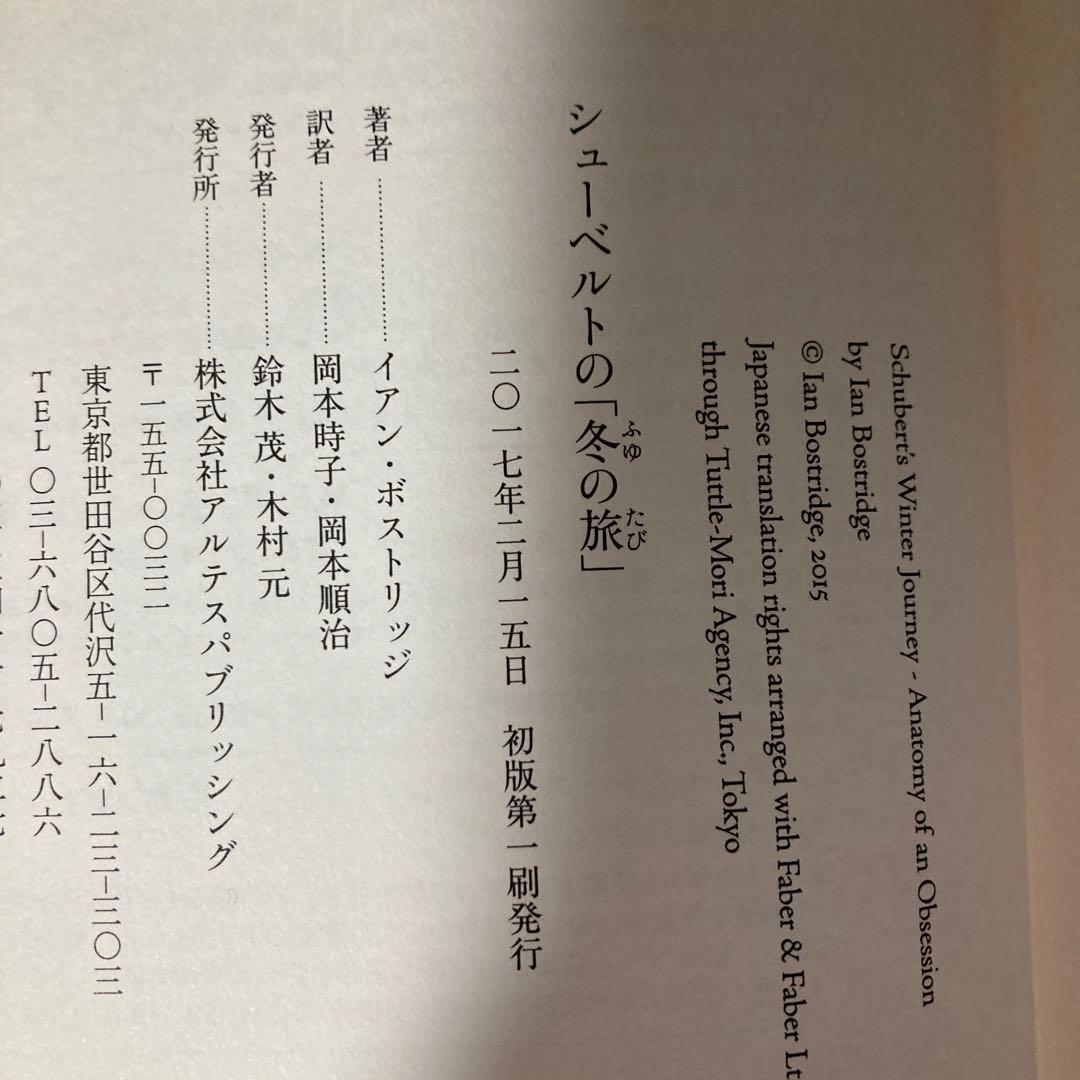 Schubert's Winter Journey - Anatomy of an Obsession
by Ian Bostridge
© Ian Bostridge, 2015
Japanese translation rights arranged with Faber & Faber Lt
through Tuttle-Mori Agency, Inc., Tokyo
シューベルトの「冬の旅」
ふゆ
たび
二〇一七年二月一五日 初版第一刷発行
著者…………イアン・ボストリッジ
訳者…………岡本時子・岡本順治
発行者…………鈴木 茂・木村 元
発行所…………株式会社アルテスパブリッシング
〒一五五-〇〇三二
東京都世田谷区代沢五-一六-二三-三〇三
TEL 〇三-六八〇五-二八八六